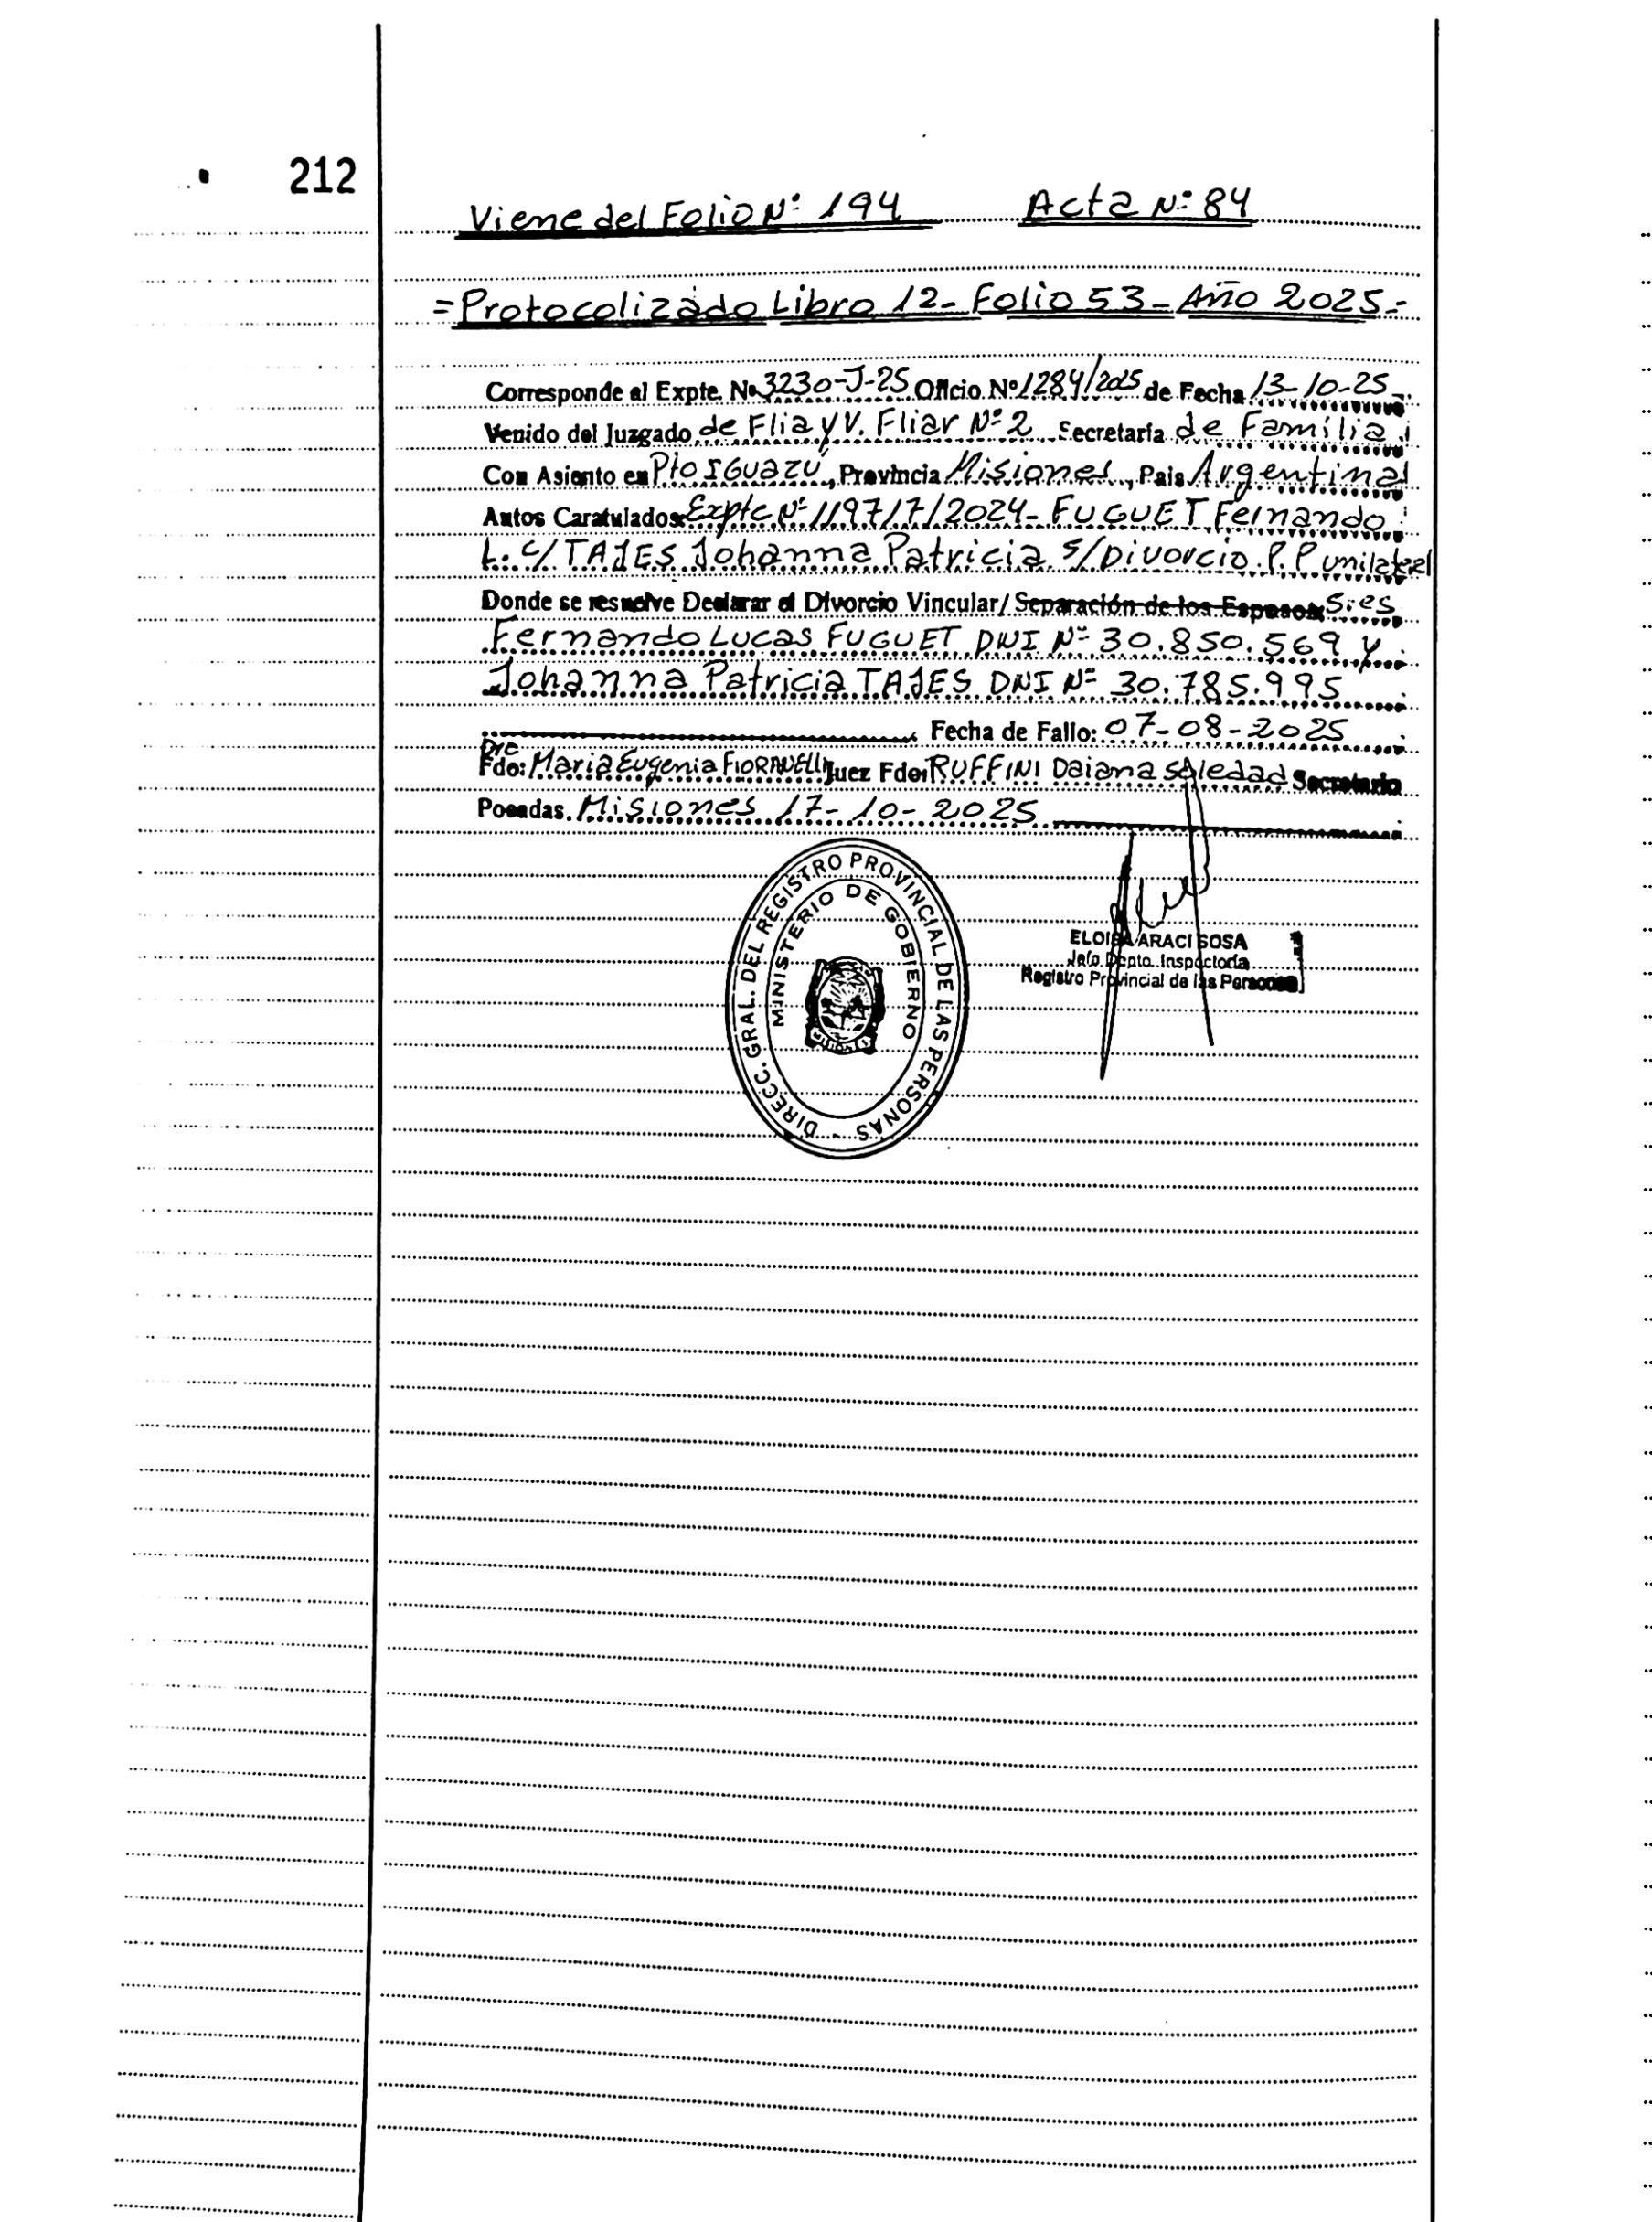 212
Viene del Folio Nº 194 Acta Nº 84
=Protocolizado Libro 12- Folio 53- Año 2025-
Corresponde al Expte. Nº 3230-J-25 Oficio Nº 1284/2025 de Fecha 13-10-25
Venido del Juzgado de Flia y V. Fliar Nº 2 Secretaría de Familia
Con Asiento en Pto Iguazú, Provincia Misiones, Pais Argentina
Autos Caratulados: Expte Nº 119717/2024- FUGUET Fernando
L. c/ TAJES Johanna Patricia s/ Divorcio P.P unilateral
Donde se resuelve Declarar el Divorcio Vincular/ Separación de los Esposos: Sres
Fernando Lucas FUGUET DNI Nº 30.850.569 y
Johanna Patricia TAJES DNI Nº 30.785.995
Fecha de Fallo: 07-08-2025
Dra
Fdo: Maria Eugenia Juez Fdo: RUFFINI Daiana Soledad Secretario
Posadas, Misiones 17-10-2025
DIRECC. GRAL. DEL REGISTRO PROVINCIAL DE LAS PERSONAS -
MINISTERIO DE GOBIERNO
ELOISA ARACI SOSA
Jefa Dpto. Inspectoria
Registro Provincial de las Personas